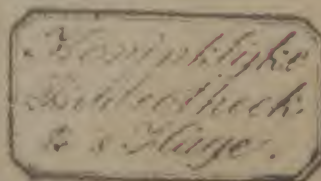 Koninklyke
Bibliotheek
te s Hage.